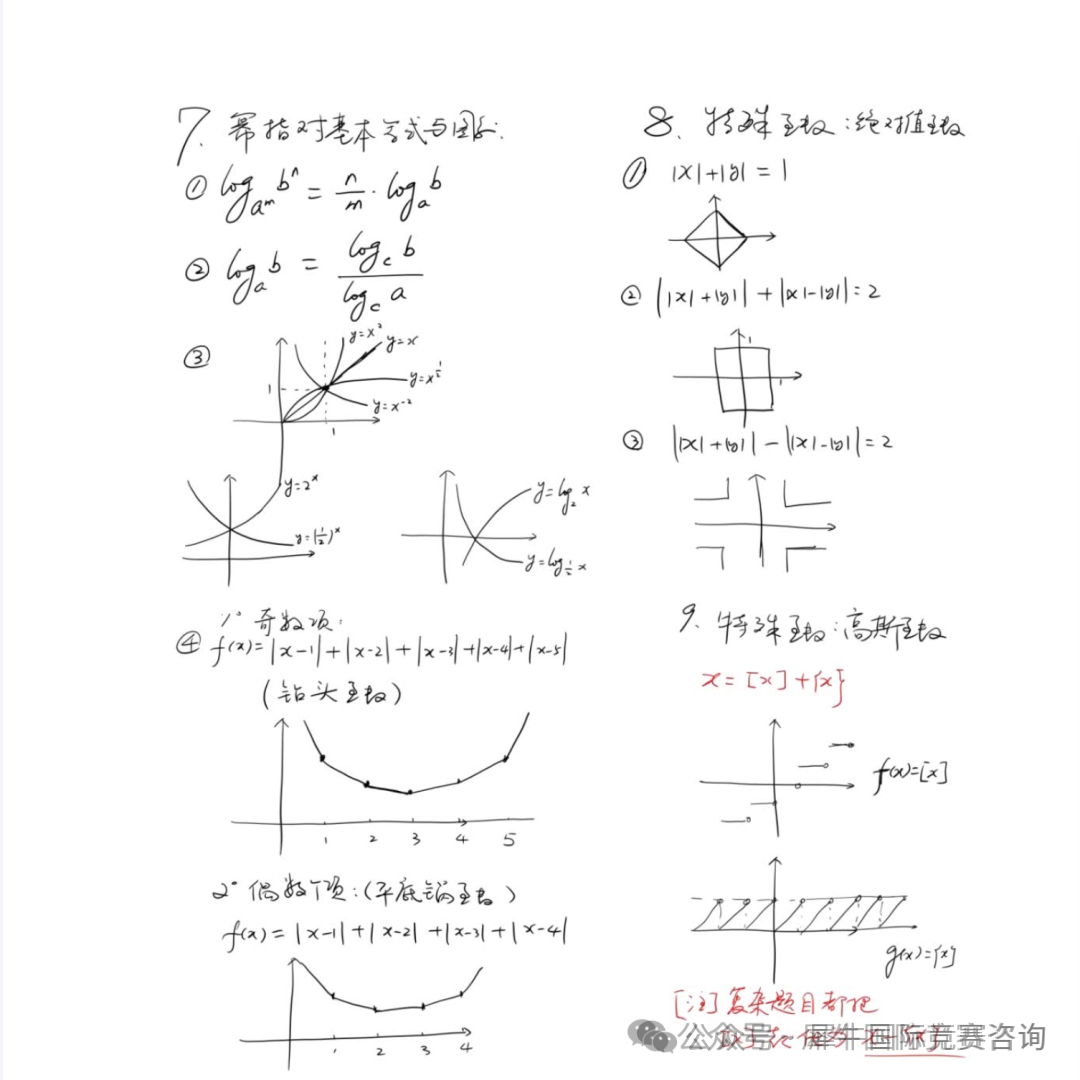 7. 幂指对基本公式与图象.
① log_{a^m} b^n = n/m · log_a b
② log_a b = log_c b / log_c a
③
y=x²
y=x
y=x^{1/2}
y=x^{-2}
1
1
y=2^x
y=(1/2)^x
y=log_2 x
y=log_{1/2} x
1° 奇数项:
④ f(x)=|x-1|+|x-2|+|x-3|+|x-4|+|x-5|
(钻头函数)
1 2 3 4 5
2° 偶数个项:(平底锅函数)
f(x)=|x-1|+|x-2|+|x-3|+|x-4|
1 2 3 4
8. 特殊函数:绝对值函数
① |x|+|y|=1
② ||x|+|y||+||x|-|y||=2
1
1
③ ||x|+|y||-||x|-|y||=2
9. 特殊函数:高斯函数
x=[x]+{x}
f(x)=[x]
g(x)={x}
[注] 复杂题目都把
公众号 犀牛国际竞赛咨询